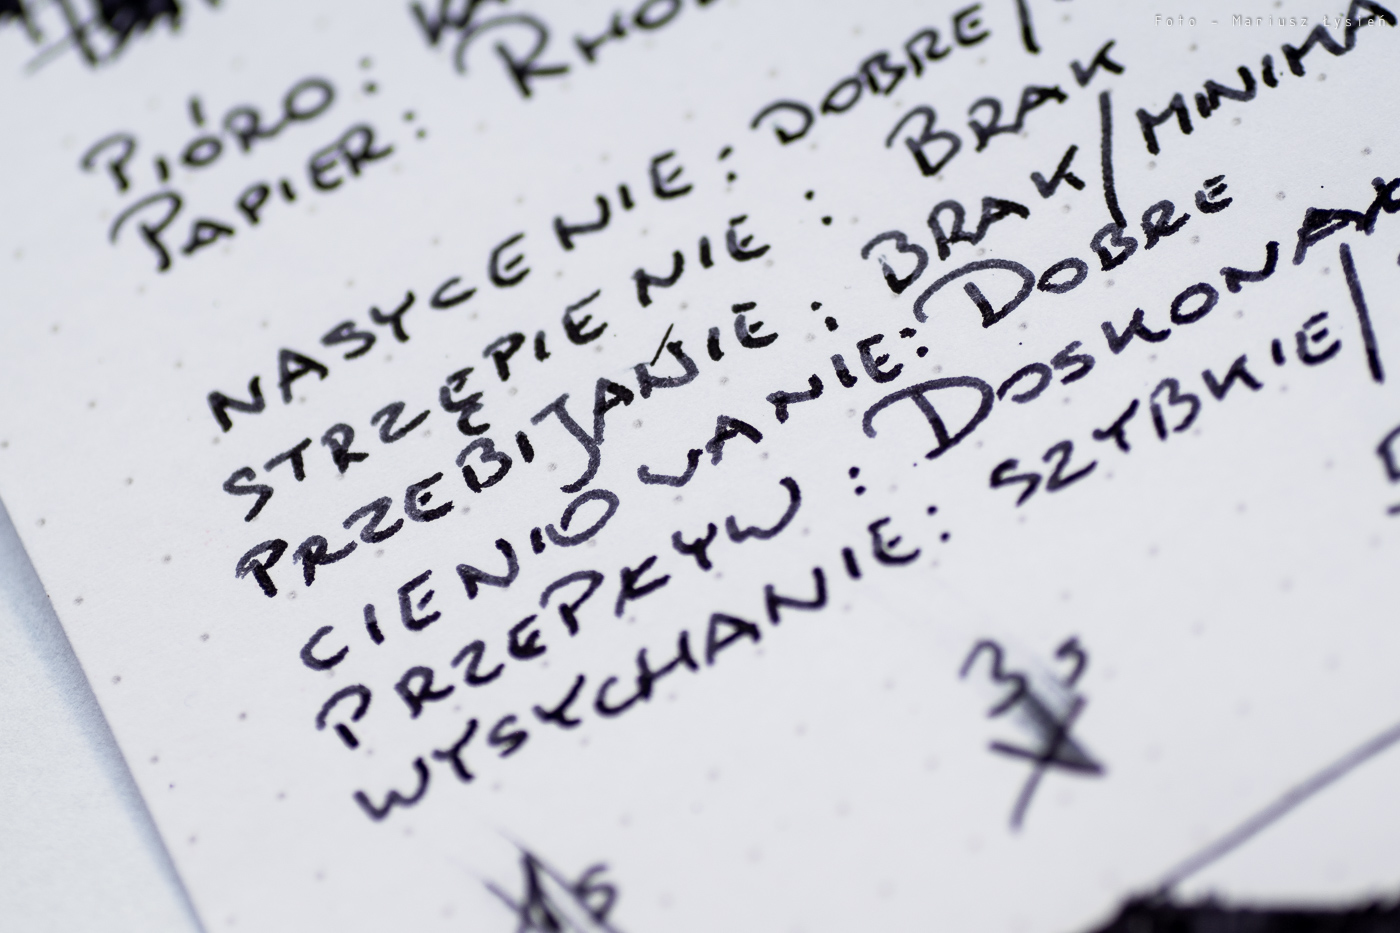 Foto - Mariusz Łysień
PIÓRO:
PAPIER:
NASYCENIE: DOBRE/
STRZĘPIENIE: BRAK
PRZEBIJANIE: BRAK/
CIENIOWANIE: DOBRE
PRZEPŁYW:
WYSYCHANIE: SZYBKIE/
3s